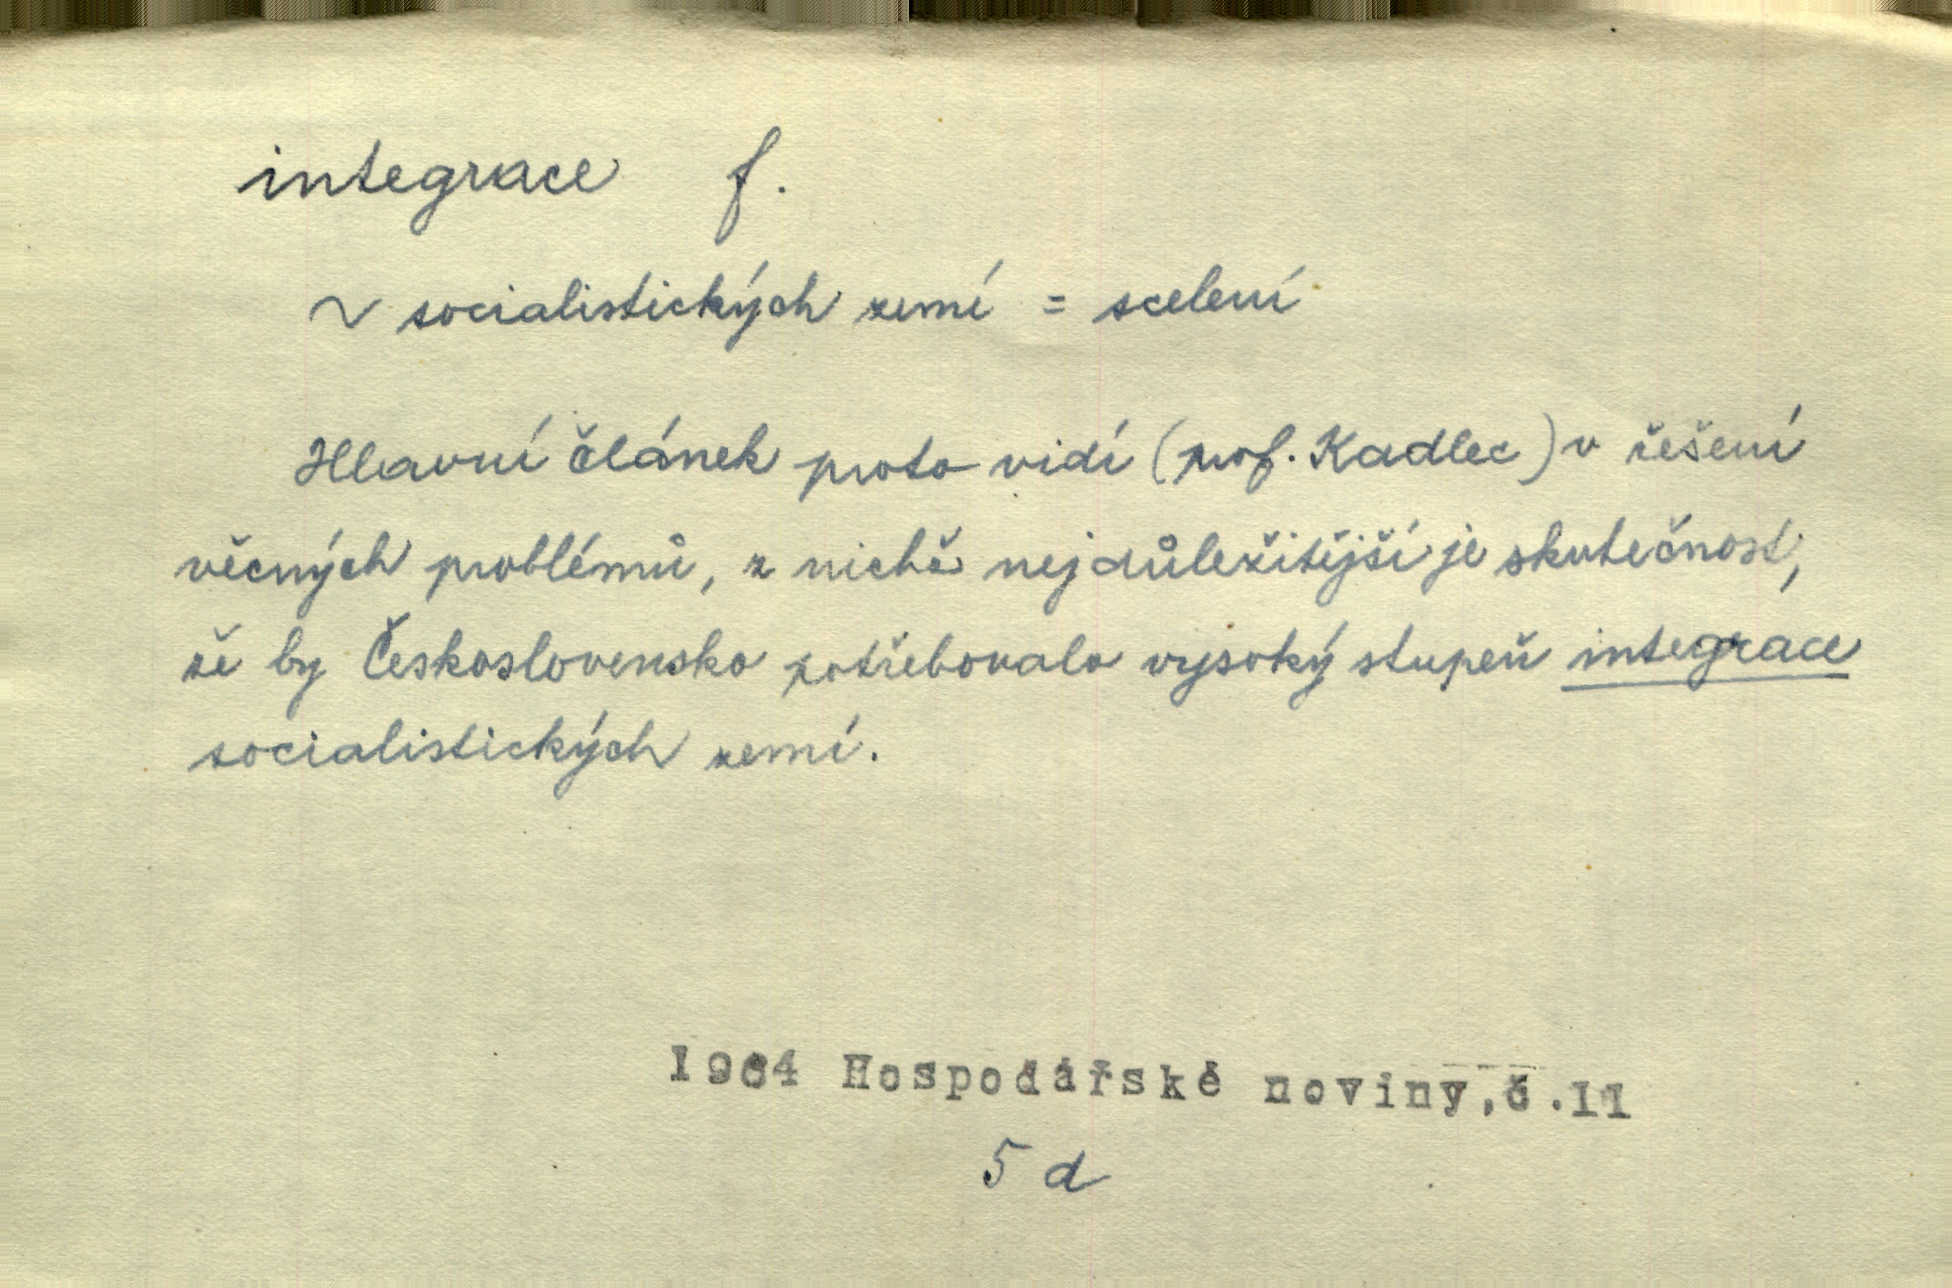 integrace f.
~ socialistických zemí = scelení
Hlavní článek proto vidí (prof. Kadlec) v řešení
věcných problémů, z nichž nejdůležitější je skutečnost,
že by Československo potřebovalo vysoký stupeň integrace
socialistických zemí.
1964 Hospodářské noviny, č.11
5 d